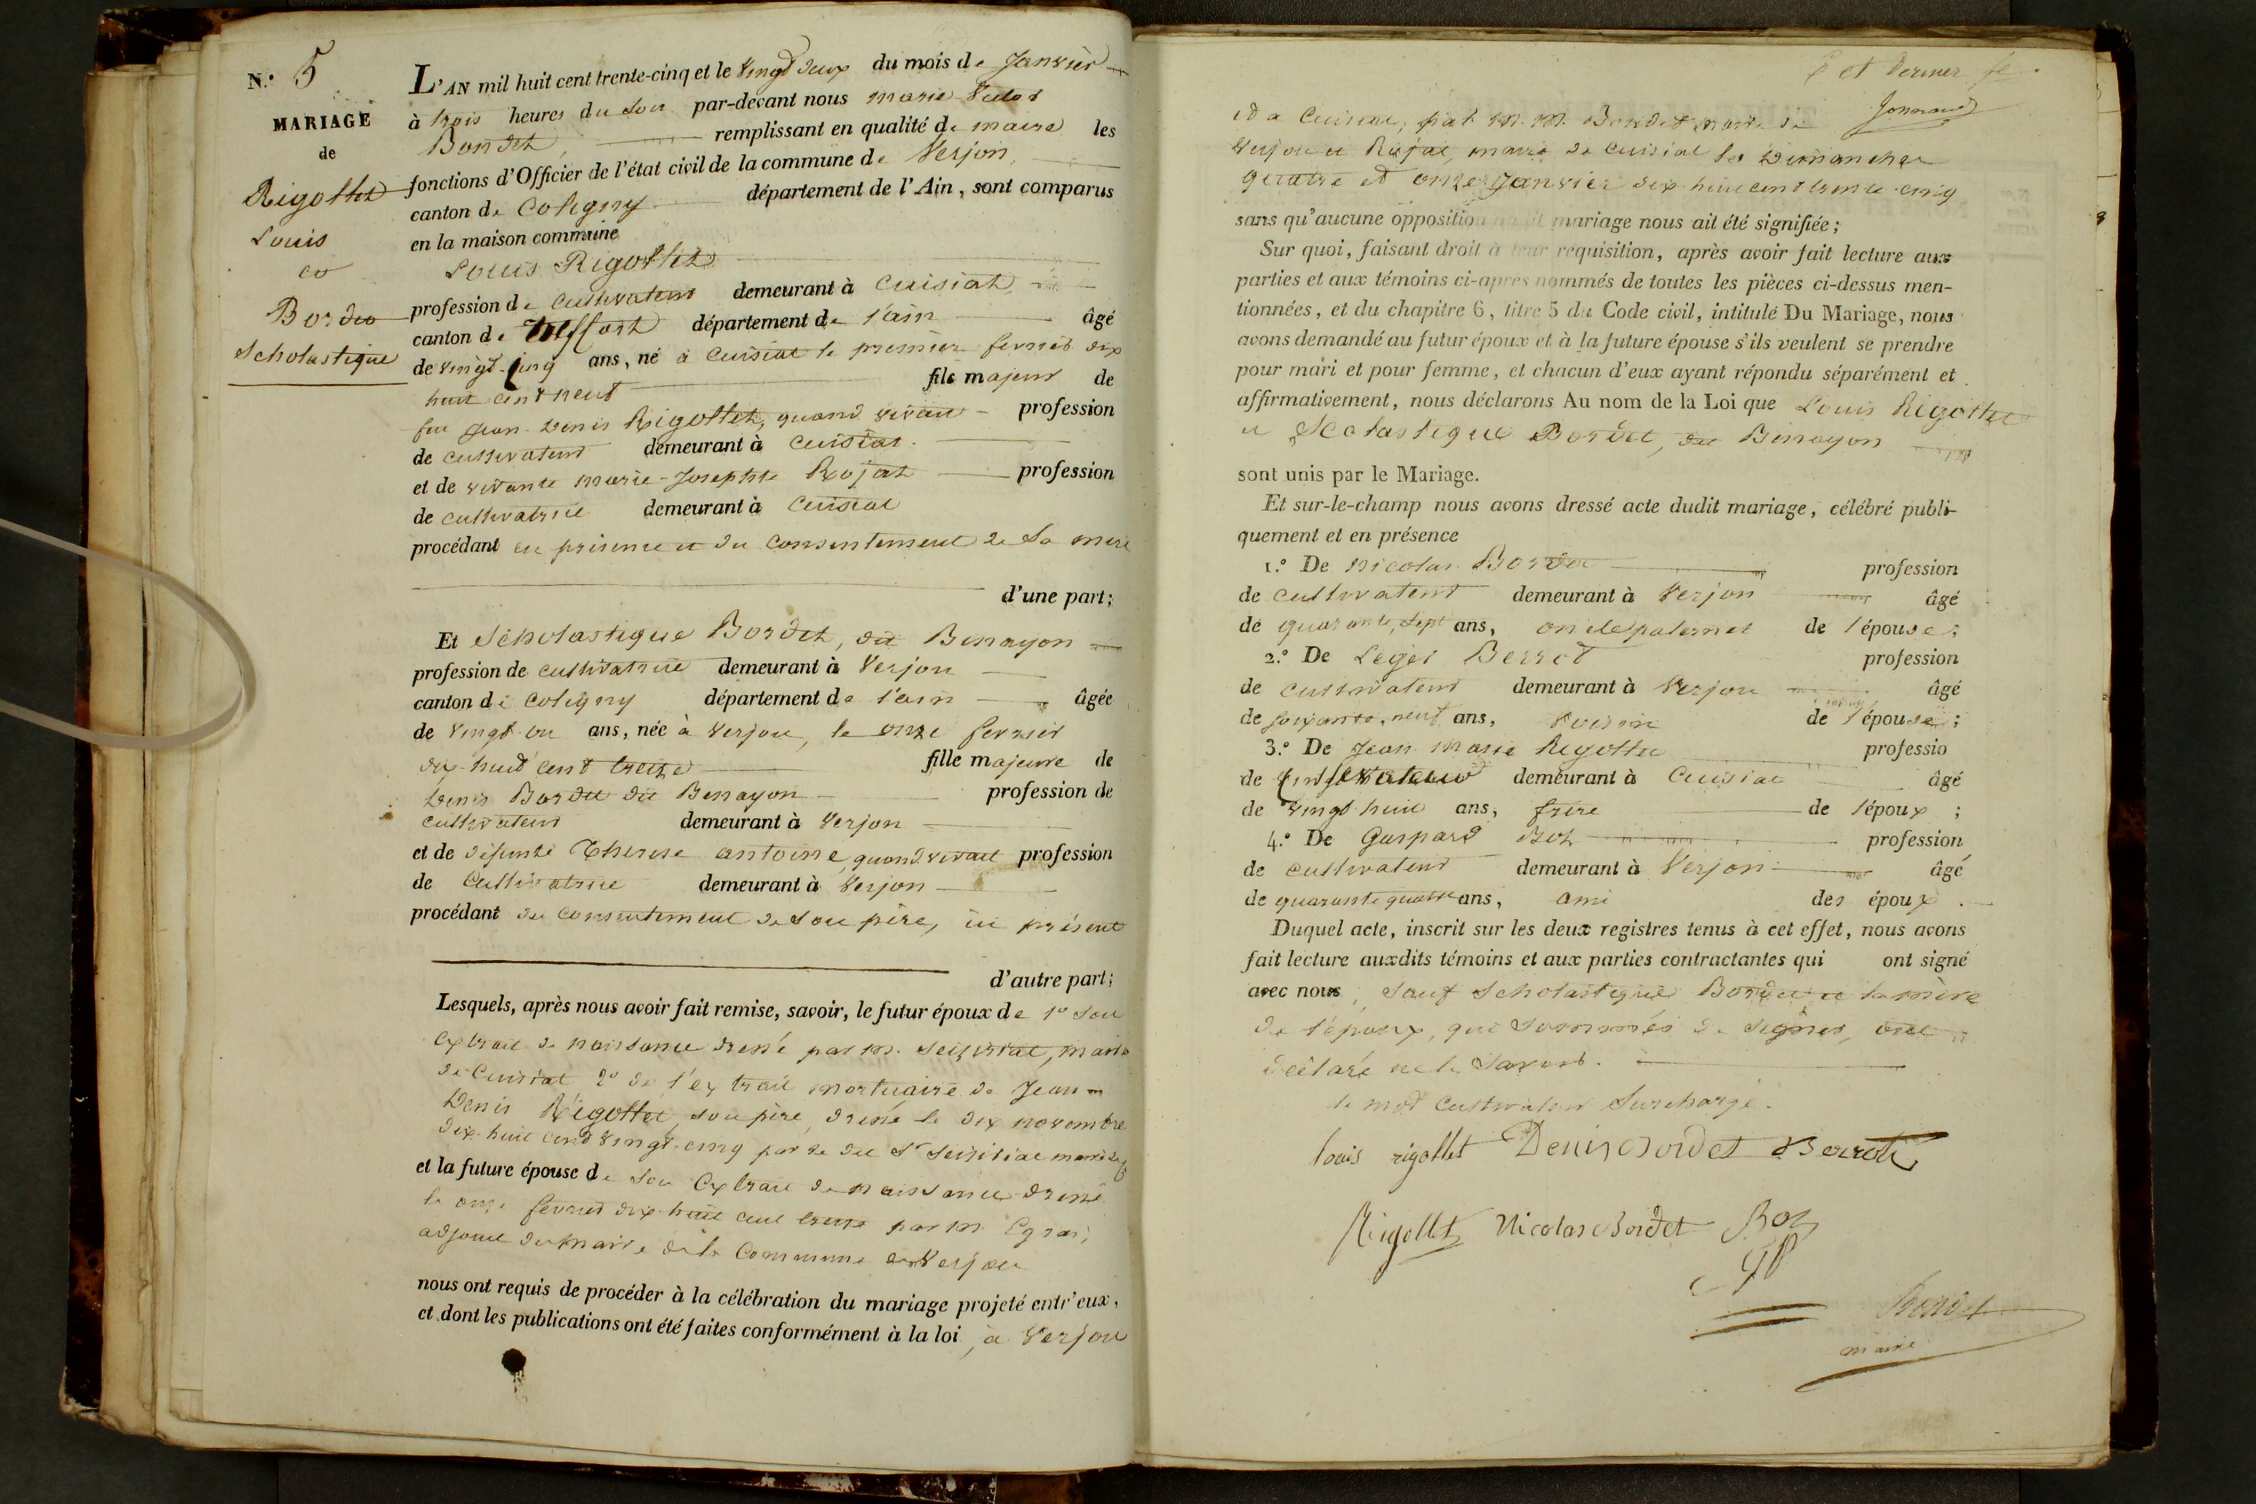 N.° 5
MARIAGE
de
Rigollet
Louis
et
Bordet
Scholastique
L'AN mil huit cent trente-cinq et le vingt deux du mois de Janvier
à trois heures du soir par-devant nous marie victor
Bondet, remplissant en qualité de maire les
fonctions d'Officier de l'état civil de la commune de Verjon,
canton de Coligny département de l'Ain, sont comparus
en la maison commune
Louis Rigollet
profession de cultivateur demeurant à Cuisiat,
canton de Treffort département de l'ain âgé
de vingt-cinq ans, né à Cuisiat le premier fevrier dix
huit cent neuf fils majeur de
feu Jean-Denis Rigollet, quand vivait profession
de cultivateur demeurant à Cuisiat.
et de vivante marie-Josephte Rojat profession
de cultivatrice demeurant à Cuisiat
procédant en présence et du consentement de Sa mère
d'une part;
Et Scholastique Bordet, dit Benayon
profession de cultivatrice demeurant à Verjon
canton de Coligny département de l'ain âgée
de vingt-un ans, née à Verjon, le onze fevrier
dix-huit cent treize fille majeure de
Denis Bordet dit Benayon profession de
cultivateur demeurant à Verjon
et de défunte Therese antoine, quand vivait profession
de Cultivatrice demeurant à Verjon
procédant du consentement de son père, ici présent
d'autre part;
Lesquels, après nous avoir fait remise, savoir, le futur époux de 1° son
extrait de naissance dressé par m. maire
de Cuisiat 2° de l'extrait mortuaire de Jean
Denis Rigollet, son père, dressé le dix novembre
dix-huit cent vingt-cinq par le dit Sr maire
et la future épouse de son Extrait de naissance dressé
le onze fevrier dix-huit cent treize par m.
adjoint du maire de la Commune de Verjon
nous ont requis de procéder à la célébration du mariage projeté entr'eux,
et dont les publications ont été faites conformément à la loi, à Verjon
et dernier
et a Cuisiat, par m.m. Bondet, maire de
Verjon et Rojat, maire de Cuisiat les Dimanches
quatre et onze Janvier dix-huit cent trente-cinq
sans qu'aucune opposition audit mariage nous ait été signifiée;
Sur quoi, faisant droit à leur requisition, après avoir fait lecture aux
parties et aux témoins ci-après nommés de toutes les pièces ci-dessus men-
tionnées, et du chapitre 6, titre 5 du Code civil, intitulé Du Mariage, nous
avons demandé au futur époux et à la future épouse s'ils veulent se prendre
pour mari et pour femme, et chacun d'eux ayant répondu séparément et
affirmativement, nous déclarons Au nom de la Loi que Louis Rigollet
et Scolastique Bordet, dit Benayon
sont unis par le Mariage.
Et sur-le-champ nous avons dressé acte dudit mariage, célébré publi-
quement et en présence
1.° De Nicolas Bordet profession
de cultivateur demeurant à Verjon âgé
de quarante, sept ans, oncle paternel de l'épouse;
2.° De Leger Berrot profession
de cultivateur demeurant à Verjon âgé
de soixante, neuf ans, voisin de l'épouse;
3.° De Jean marie Rigollet professio
de cultivateur demeurant à Cuisiat âgé
de vingt-huit ans, frère de l'époux;
4.° De Gaspard Boz profession
de cultivateur demeurant à Verjon âgé
de quarante quatre ans, ami des époux.
Duquel acte, inscrit sur les deux registres tenus à cet effet, nous avons
fait lecture auxdits témoins et aux parties contractantes qui ont signé
avec nous, sauf Scholastique Bordet et la mère
de l'époux, qui sommés de signer, ont
déclaré ne le savoir.
le mot cultivateur surchargé.
louis rigollet Denis Bordet Berrot
Rigollet Nicolas Bordet Boz
Bondet
maire